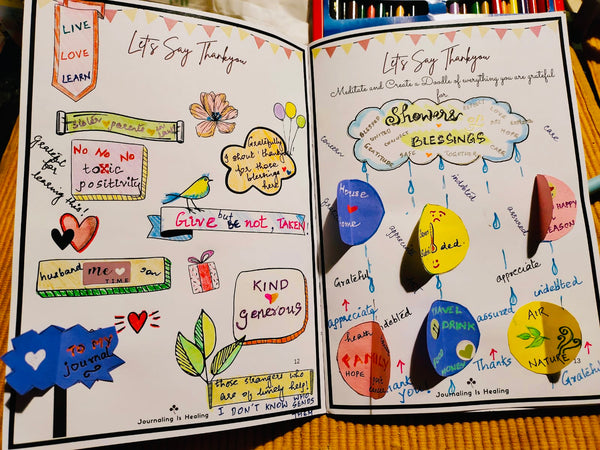 LIVE
LOVE
LEARN
Let's Say Thankyou
parents
Gratefully
I shout thanks
for those
blessings
here!
grateful
for
learning this!
No No No
toxic
positivity
Give but BE not, TAKEN!
husband me son
TIME
KIND
generous
TO MY
journal
those strangers who
are of timely help!
I DON'T KNOW WHO
SENDS
THEM
12
Journaling Is Healing
Let's Say Thankyou
Meditate and Create a Doodle of everything you are grateful
for
Showers
OF
BLESSINGS
SAFE
TOGETHER
CARE
HOPE
LOVE
concern
care
indebted
assured
House
ded.
HAPPY
EASON
Grateful
appreciate
appreciate
indebted
undebbed
assured
health
FAMILY
HOPE
TRAVEL
DRINK
AIR
NATURE
Thanks
Thank
you!
Grateful
13
Journaling Is Healing